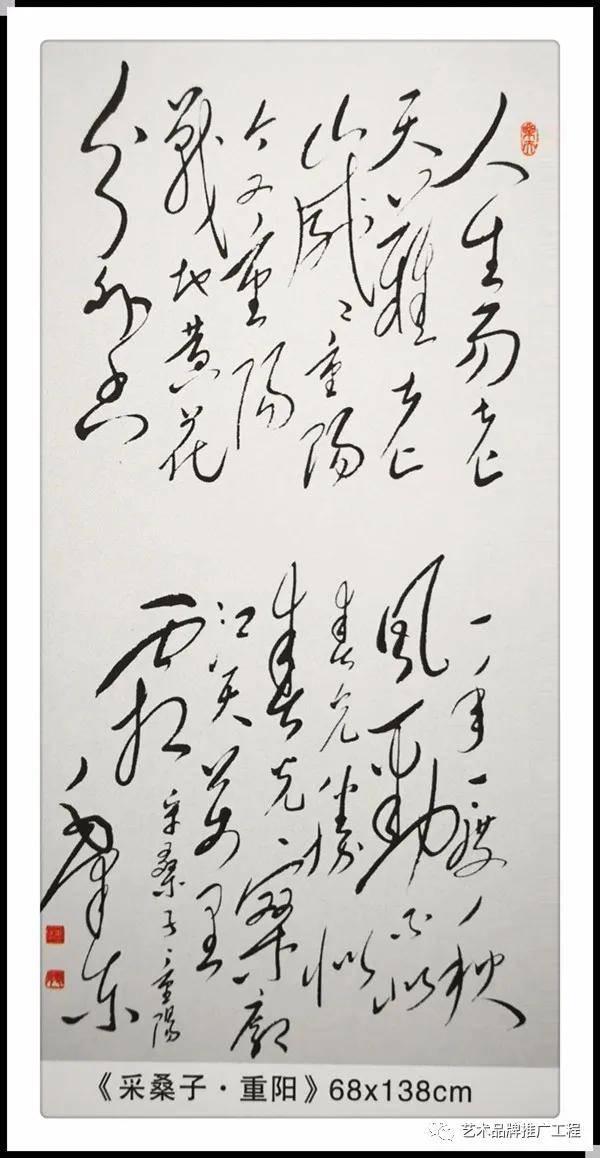 人生易老
天難老
歲歲重陽
今又重陽
戰地黃花
分外香
一年一度秋
風勁不似
春光勝似
春光寥廓
江天萬里
霜
采桑子重陽
毛澤東
《采桑子·重阳》68x138cm
艺术品牌推广工程